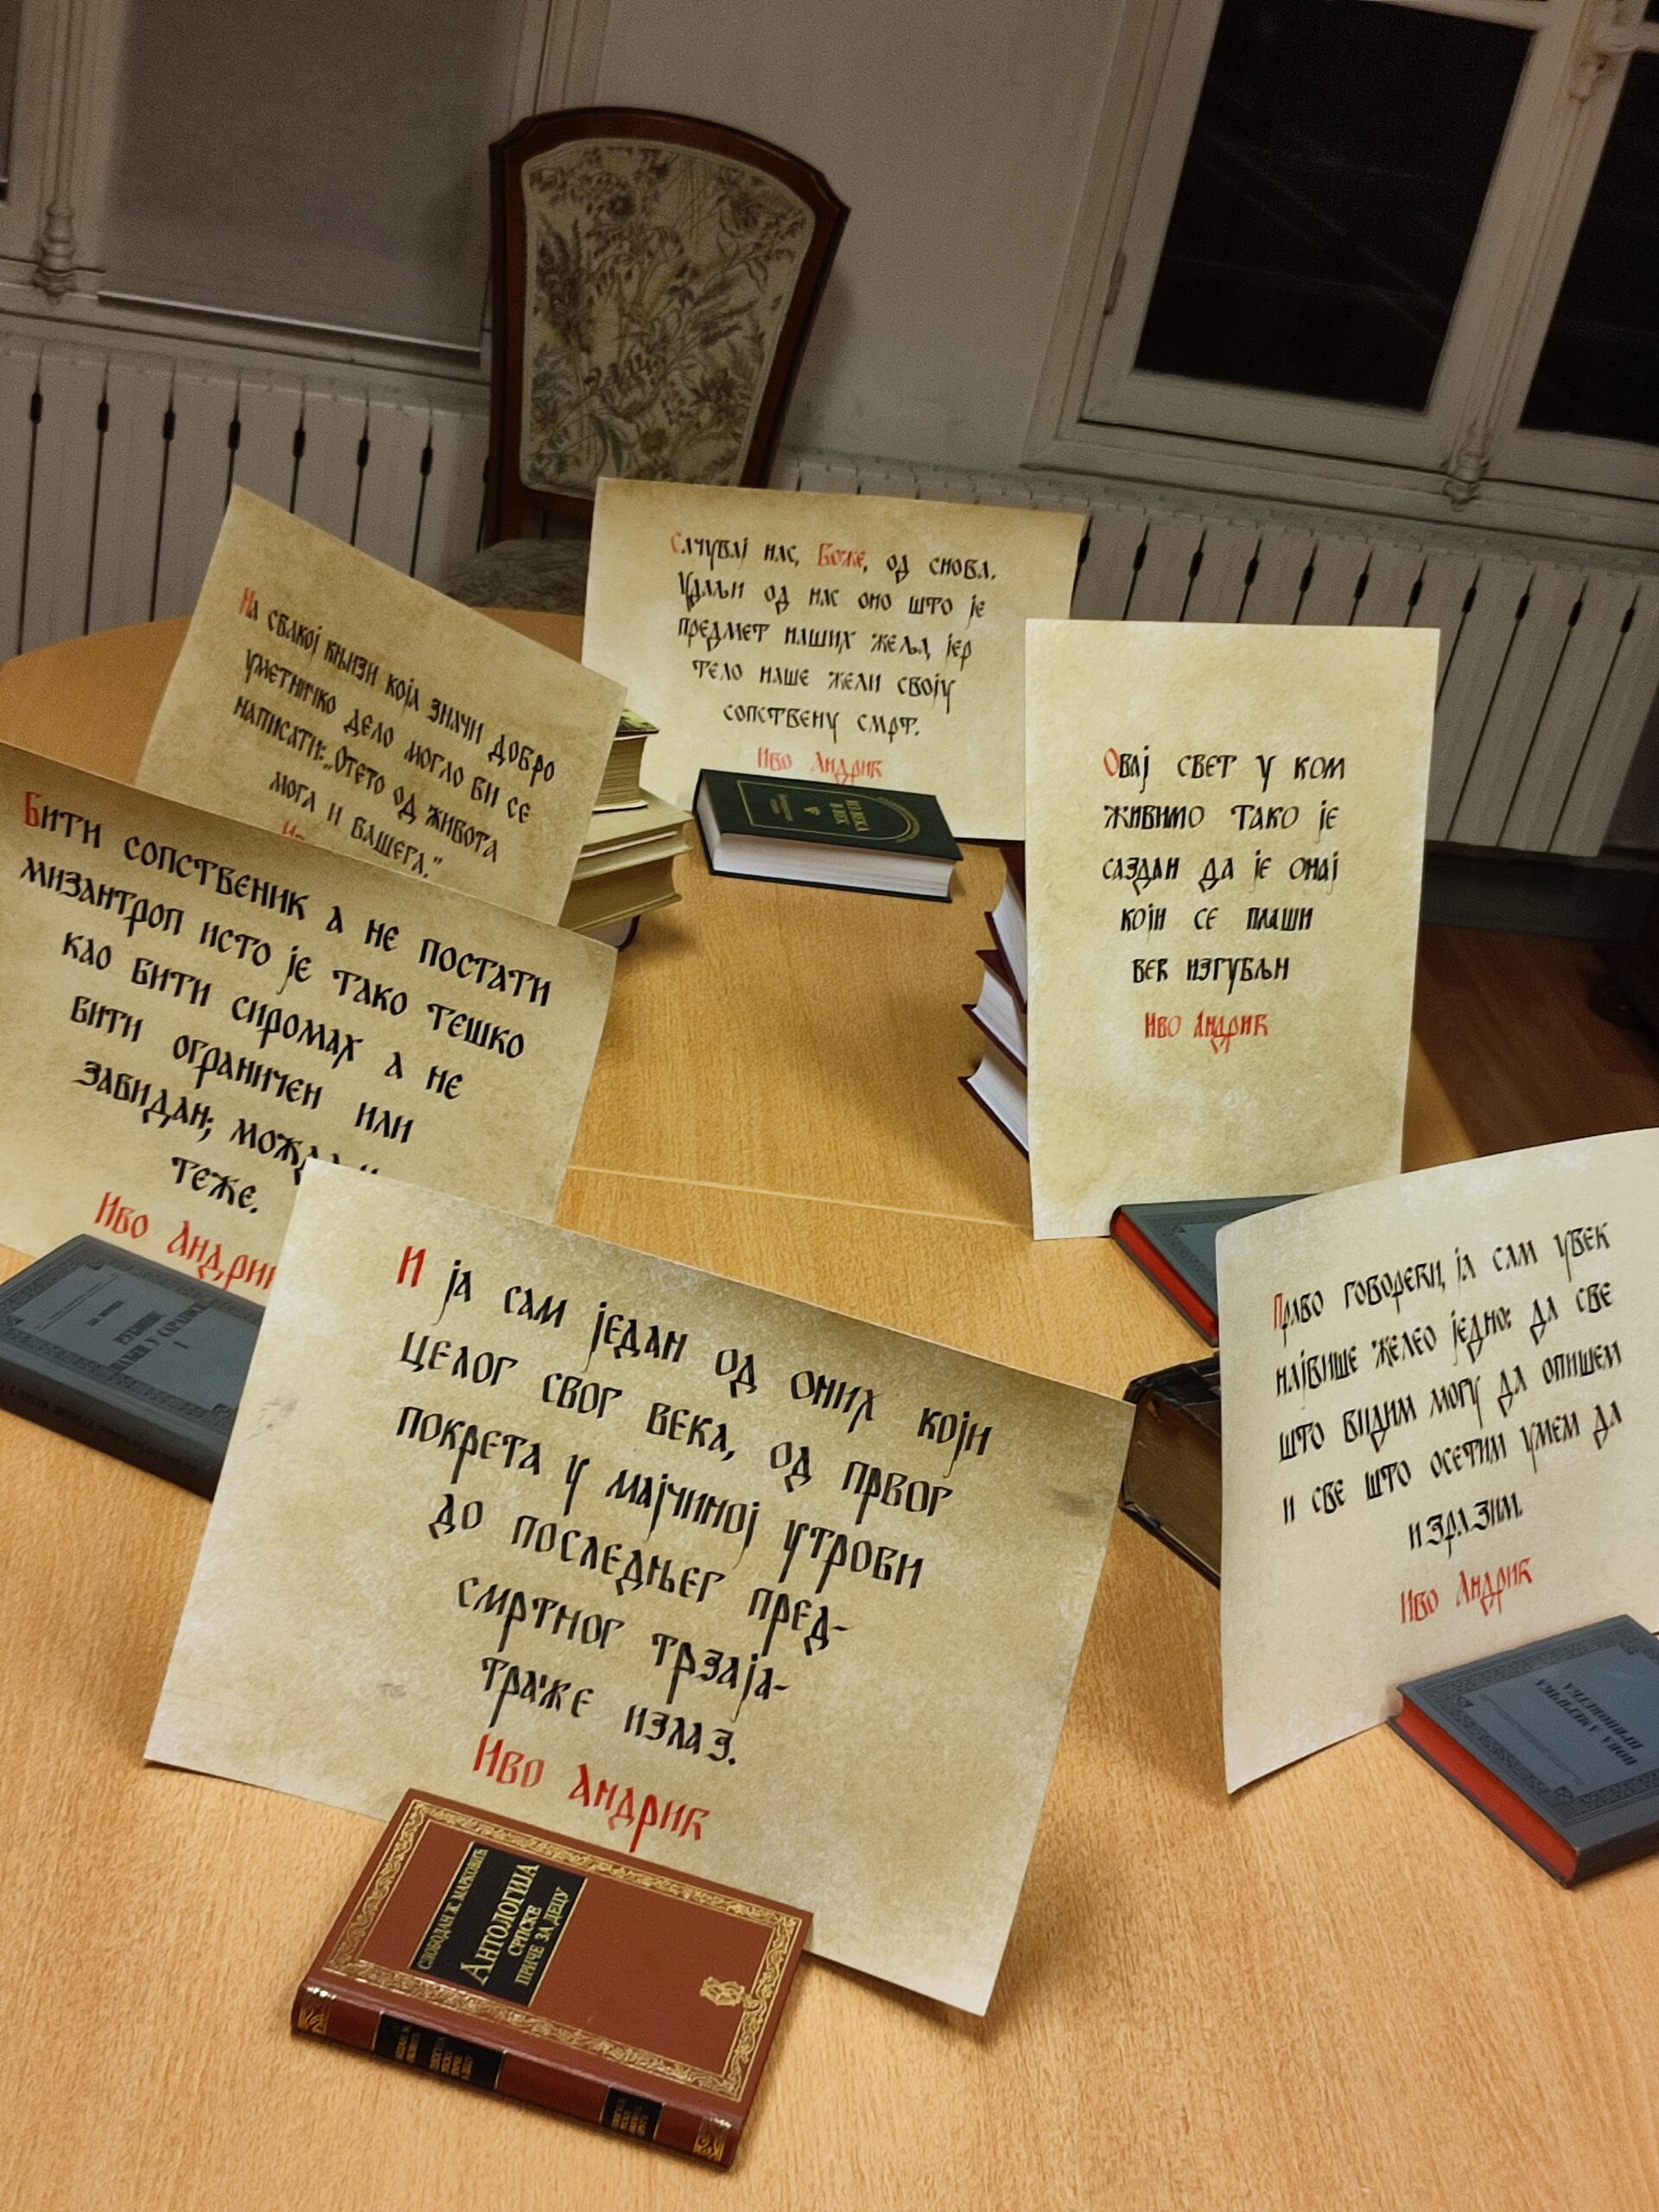 Сачувај нас, Боже, од снова.
Удаљи од нас оно што је
предмет наших жеља, јер
тело наше жели своју
сопствену смрт.
Иво Андрић
На свакој књизи која значи добро
уметничко дело могло би се
написати: „Отето од живота
мога и вашега.”
Овај свет у ком
живимо тако је
саздан да је онај
који се плаши
већ изгубљн
Иво Андрић
Бити сопственик а не постати
мизантроп исто је тако тешко
као бити сиромах а не
бити ограничен или
завидан; можда и
теже.
Иво Андрић
И ја сам један од оних који
целог свог века, од првог
покрета у мајчиној утроби
до последњег пред-
смртног трзаја-
траже излаз.
Иво Андрић
Право говорећи, ја сам увек
највише желео једно: да све
што видим могу да опишем
и све што осетим умем да
изразим.
Иво Андрић
Слободан Ж. Марковић
Антологија
српске
приче за децу